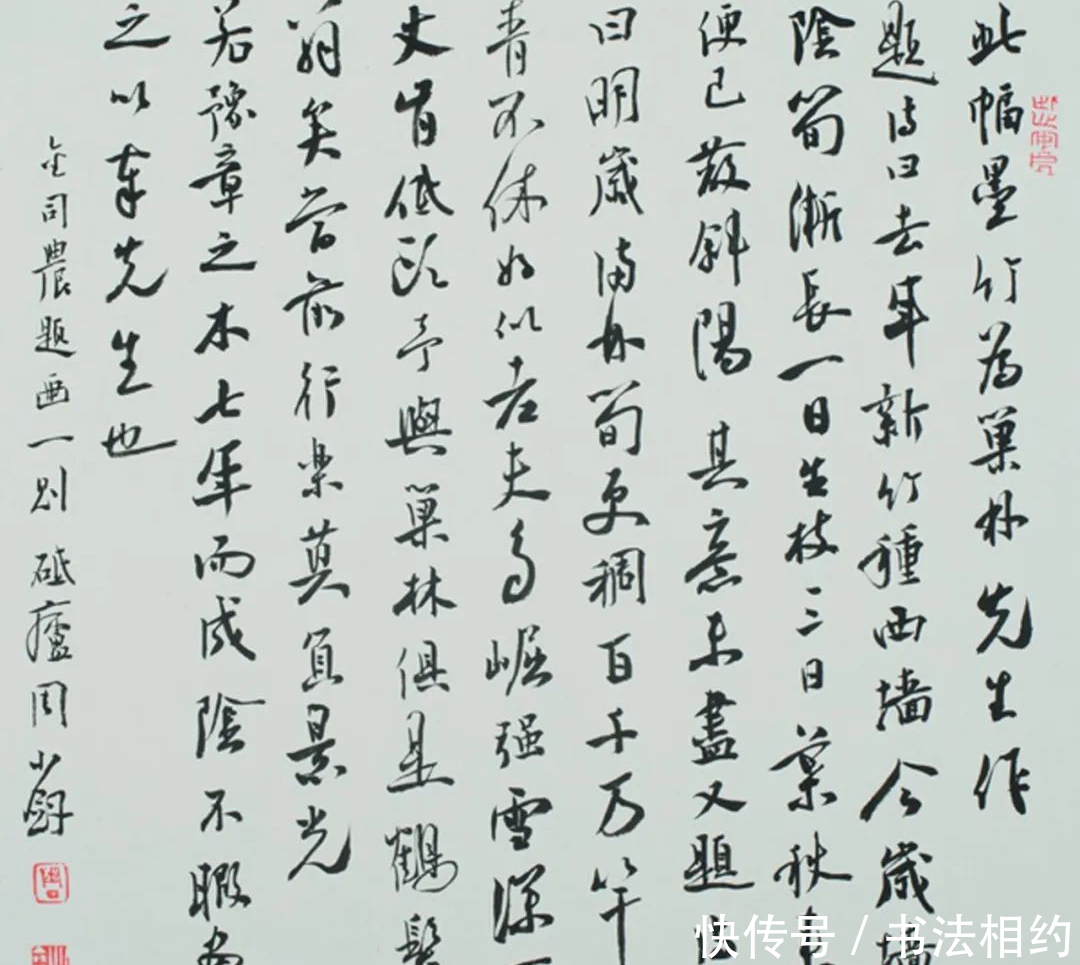 此幅墨竹為巢林先生作
題詩曰去年新竹種西墙今歲墙
陰筍漸長一日生枝三日葉秋
便已蔽斜陽 其意未盡又題
曰明歲滿林筍更稠百千万竿
青不休好似老夫多崛强雪深
丈肯低頭予與巢林俱是鶴髮
翁矣當前行樂莫負景光
若豫章之木七年而成陰不暇
之以奉先生也
金司農題画一則 砥廬周小
快传号 / 书法相约